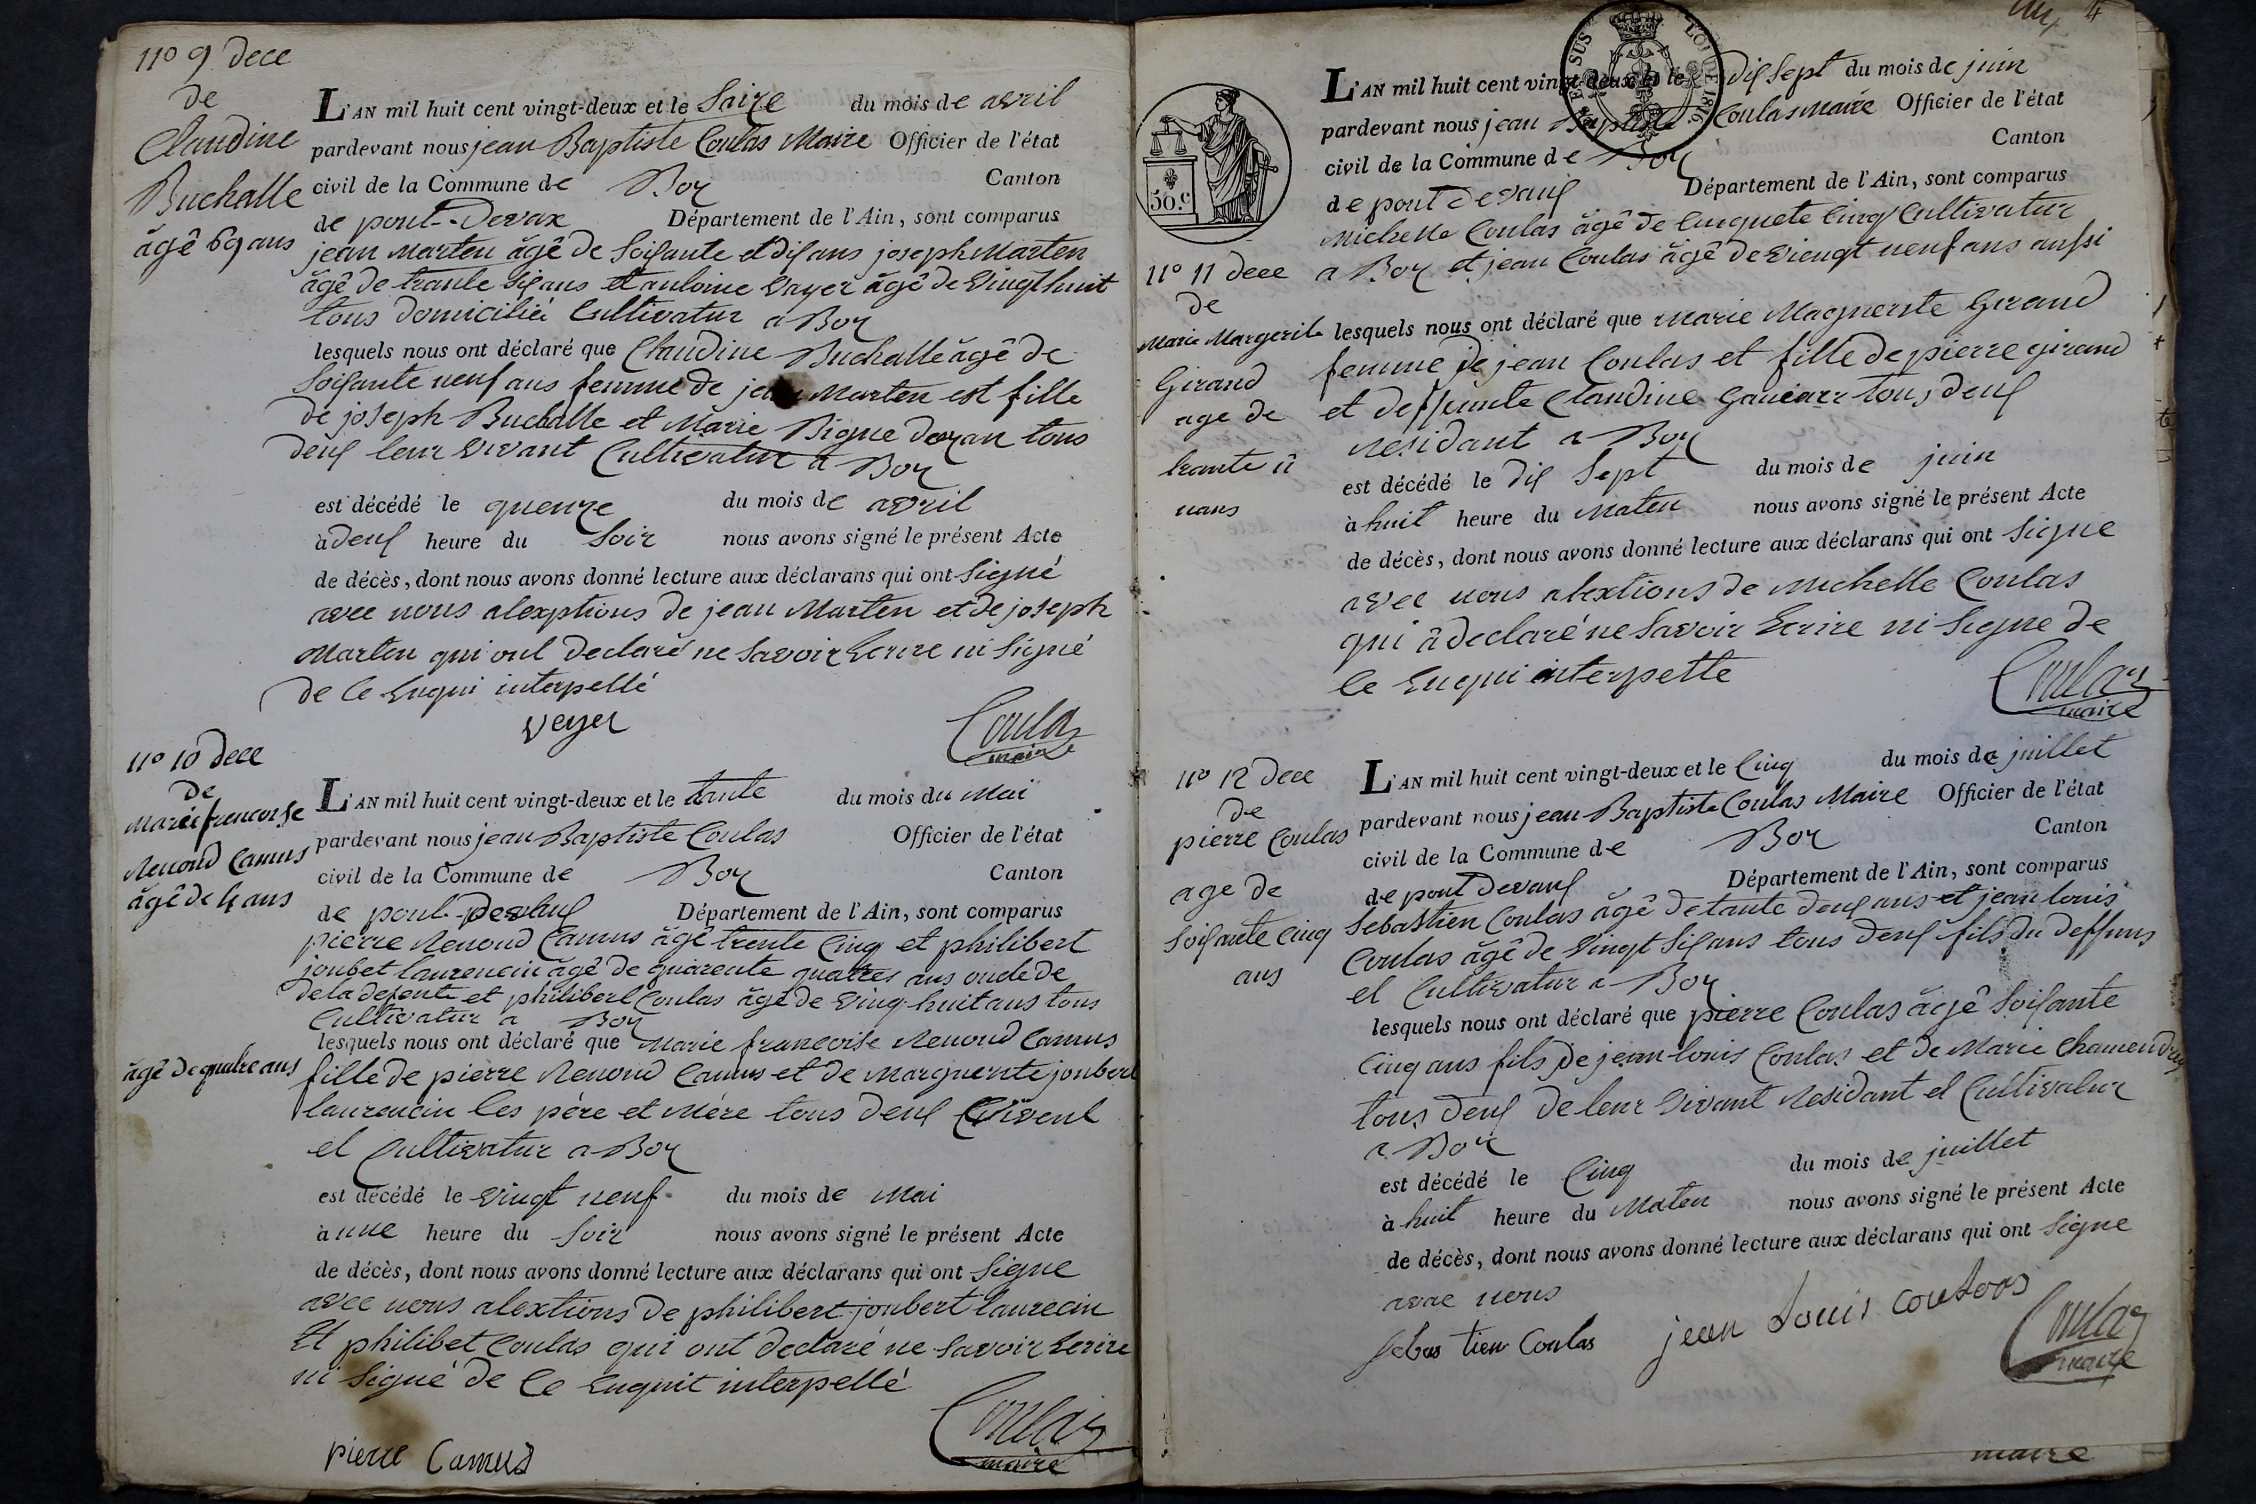 no 9 dece
de
Claudine
Buchalle
âgé 69 ans
L'AN mil huit cent vingt-deux et le Saize du mois de avril
pardevant nous jean Baptiste Coulas Maire Officier de l'état
civil de la Commune de Boz Canton
de pont-Devax Département de l'Ain, sont comparus
jean Marten âgé de Soisante et dis ans joseph Marten
âgé de trante Sis ans et antoine Vayer âgé de Vingt huit
tous domicilié Cultivatur a Boz
lesquels nous ont déclaré que Claudine Buchalle âgé de
Soisante neuf ans femme de jean Marten est fille
de joseph Buchalle et Marie Bigue tous
deus leur vivant Cultivatur a Boz
est décédé le quenze du mois de avril
à deus heure du Soir nous avons signé le présent Acte
de décès, dont nous avons donné lecture aux déclarans qui ont Signé
avec nous alexptions de jean Marten et de joseph
Marten qui ont Declaré ne Savoir Ecrire ni Signé
de Ce Enqui interpellé
veyer Coulas
maire
no 10 Dece
De
Marie francoise
Renoud Camus
âgé de 4 ans
L'AN mil huit cent vingt-deux et le trante du mois du Mai
pardevant nous jean Baptiste Coulas Officier de l'état
civil de la Commune de Boz Canton
de pont-Devaus Département de l'Ain, sont comparus
pierre Renoud Camus âgé trente Cinq et philibert
joubet laurencin âgé de quarente quatres ans oncle de
de la defente et philibert Coulas âgé de Vingt huit ans tous
Cultivatur a Boz
lesquels nous ont déclaré que Marie francoise Renoud Camus
âgé de quatre ans
fille de pierre Renoud Camus et de Marguerite joubert
laurencin les père et Mére tous deus
et Cultivatur a Boz
est décédé le vingt neuf du mois de Mai
à une heure du Soir nous avons signé le présent Acte
de décès, dont nous avons donné lecture aux déclarans qui ont Signe
avec nous alextions de philibert joubert laurecin
Et philibet Coulas qui ont declaré ne Savoir Ecrire
ni Signé de Ce Enquit interpellé
pierre Camus Coulas
maire
4
EN SUS LOI DE 1816
50.c
no 11 Dece
de
Marie Margerite
Girand
age de
trante
nans
L'AN mil huit cent vingt-deux et le dis Sept du mois de juin
pardevant nous jean Baptiste Coulas Maire Officier de l'état
civil de la Commune de Boz Canton
de pont Devaus Département de l'Ain, sont comparus
Michelle Coulas âgé de Cinquete Cinq Cultivatur
a Boz et jean Coulas âgé de viengt neuf ans aussi
lesquels nous ont déclaré que Marie Maguerite Girand
femme de jean Coulas et fille de pierre girand
et deffunte Claudine tous deus
Residant a Boz
est décédé le dis Sept du mois de juin
à huit heure du Maten nous avons signé le présent Acte
de décès, dont nous avons donné lecture aux déclarans qui ont Signe
avec nous alextions de Michelle Coulas
qui à declaré ne Savoir Ecrire ni Signe de
Ce Enqui interpette
Coulas
maire
no 12 Dece
De
pierre Coulas
age de
Soisante Cinq
ans
L'AN mil huit cent vingt-deux et le Cinq du mois de juillet
pardevant nous jean Baptiste Coulas Maire Officier de l'état
civil de la Commune de Boz Canton
de pont Devaus Département de l'Ain, sont comparus
Sebastien Coulas âgé de tante deus ans et jean louis
Coulas âgé de Vingt Sis ans tous deus fils du deffuns
et Cultivatur a Boz
lesquels nous ont déclaré que pierre Coulas âgé Soisante
Cinq ans fils de jean louis Coulas et de Marie
tous deus de leur Vivant Residant et Cultivatur
a Boz
est décédé le Cinq du mois de juillet
à huit heure du Maten nous avons signé le présent Acte
de décès, dont nous avons donné lecture aux déclarans qui ont Signe
avac nous
Sebas tien Coulas jean Louis Couloos Coulas
maire
maire